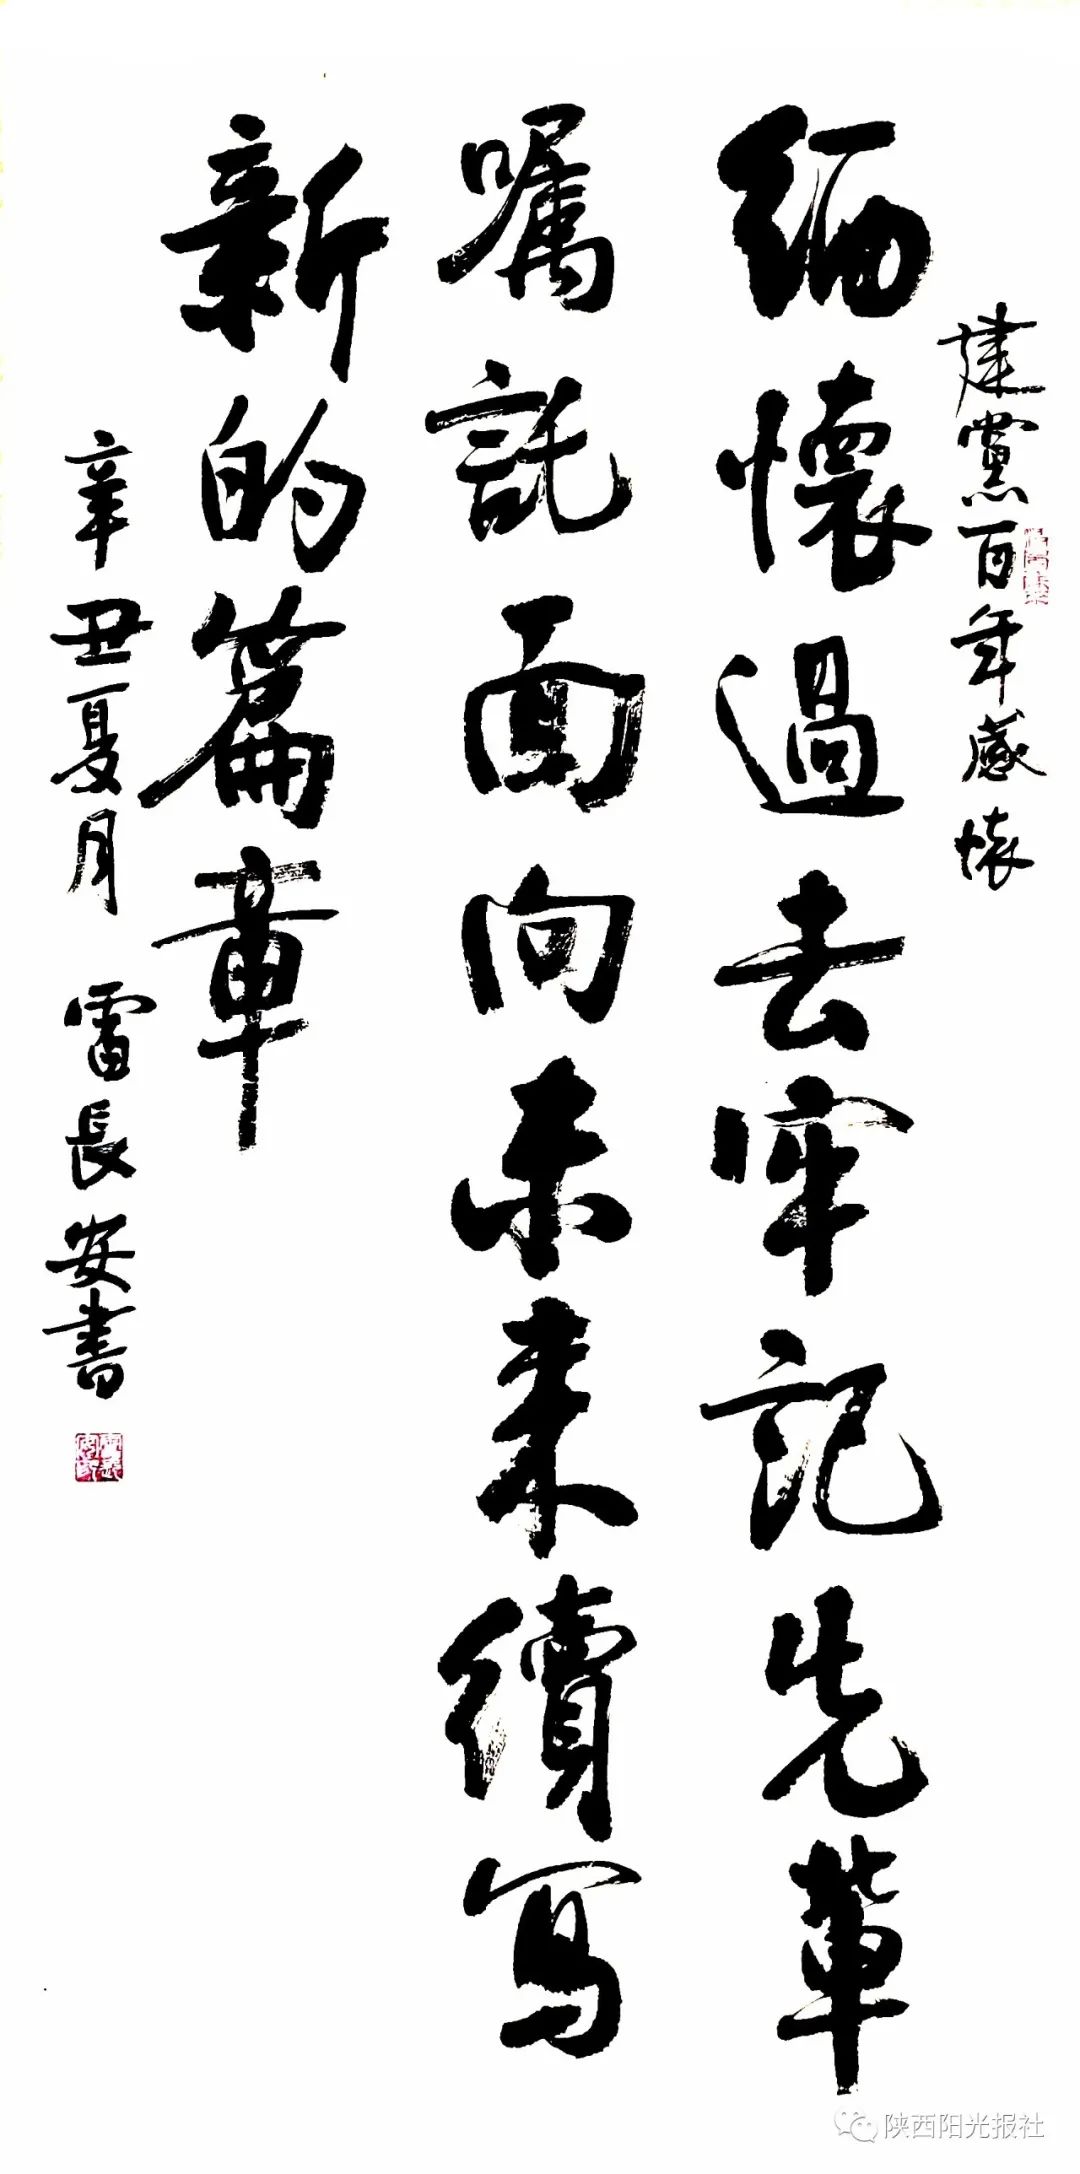 建黨百年感懷
缅懷過去牢記先輩
嘱託面向未来續写
新的篇章
辛丑夏月 雷長安書
陕西阳光报社